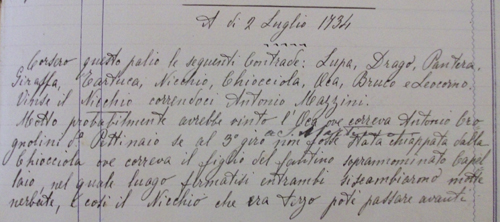 A di 2 Luglio 1734
Corsero questo palio le seguenti Contrade: Lupa, Drago, Pantera,
Giraffa, Tartuca, Nicchio, Chiocciola, Oca, Bruco e Leocorno.
Vinse il Nicchio correndoci Antonio Mazzini.
Molto probabilmente avrebbe vinto l'Oca ove correva Antonio Bro-
gnolini d° Pettinaio se al 3° giro non fosse stata chiappata dalla
Chiocciola ove correva il figlio del fantino soprannominato Capel-
laio, nel quale luogo fermatisi entrambi si scambiarono molte
nerbate, e così il Nicchio che era terzo potè passare avanti